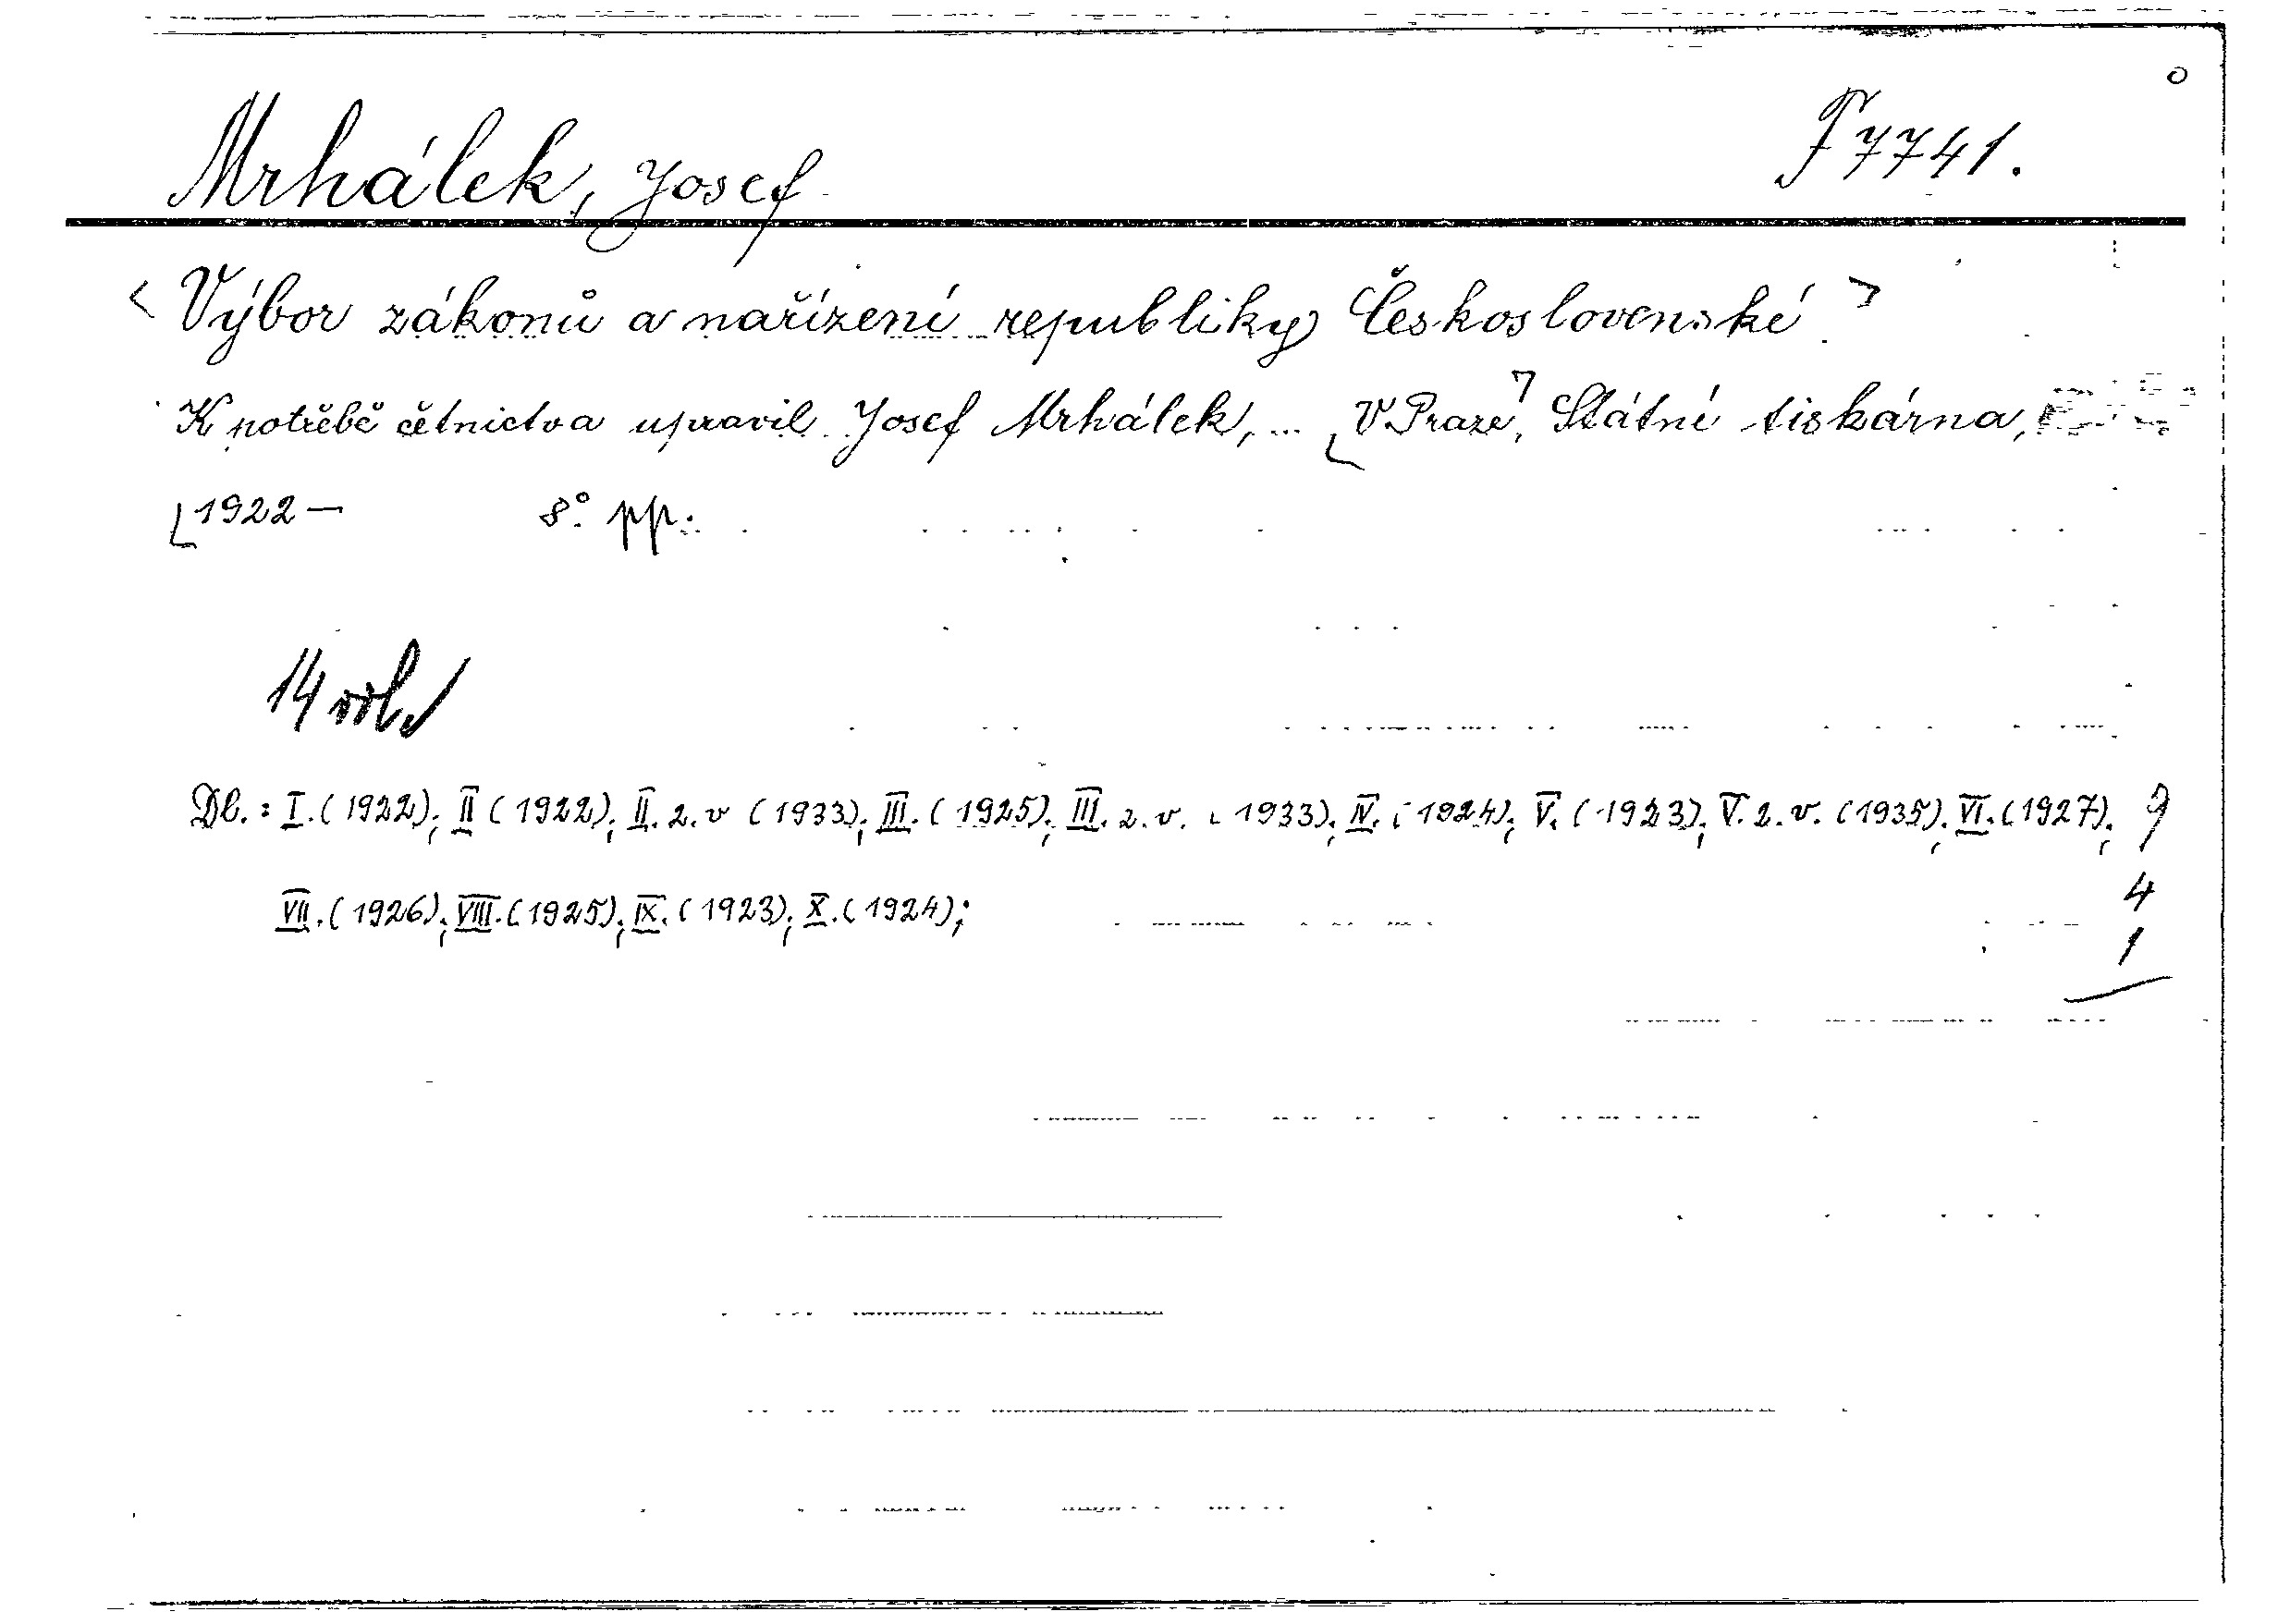 Mrhálek, Josef
F 7741.
< Výbor zákonů a nařízení republiky Československé >
K potřebě četnictva upravil Josef Mrhálek, ... V Praze, Státní tiskárna,
1922 — 8° pp.
14 vol.
Db.: I. (1922); II (1922); II. 2. v (1933); III. (1925); III. 2. v. (1933); IV. (1924); V. (1923); V. 2. v. (1935); VI. (1927); 9
VII. (1926); VIII. (1925); IX. (1923); X. (1924); 4
1